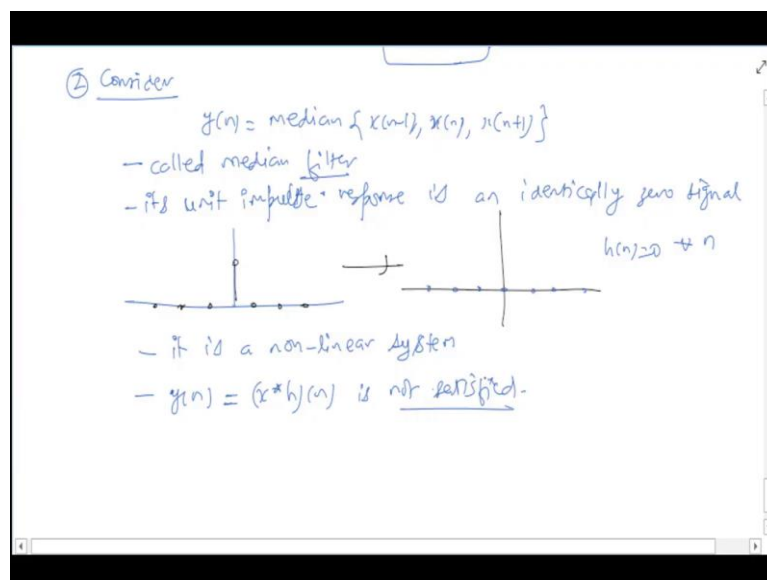 ② Consider
y(n) = median { x(n-1), x(n), x(n+1) }
- called median filter
- its unit impulse response is an identically zero signal
h(n)=0 ∀ n
- it is a non-linear system
- y(n) = (x*h)(n) is not satisfied.